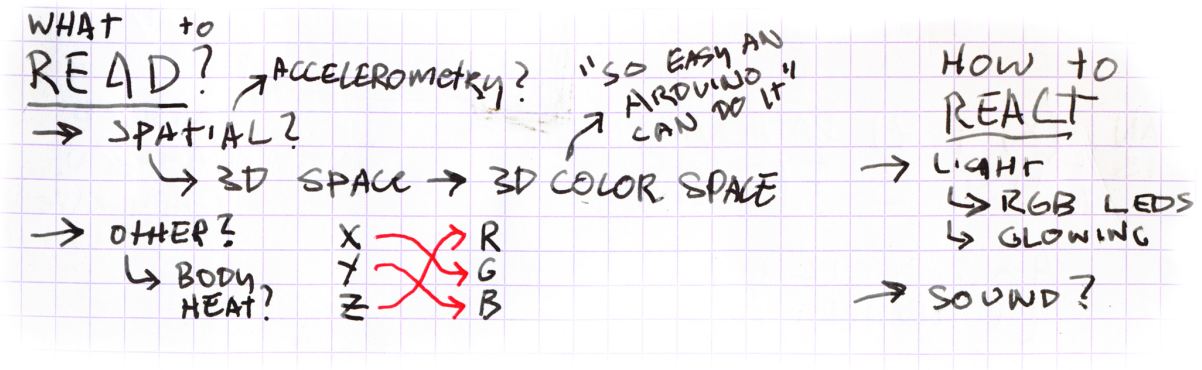 WHAT to
READ?
ACCELEROMEtRY?
→ SPAtIAL?
↳ 3D SPACE → 3D COLOR SPACE
"SO EASY AN
ARDUINO
CAN DO It"
→ OTHER?
↳ BODY
HEAt?
X R
Y G
Z B
HOW to
REACT
→ LIGHT
↳ RGB LEDS
↳ GLOWING
→ SOUND?